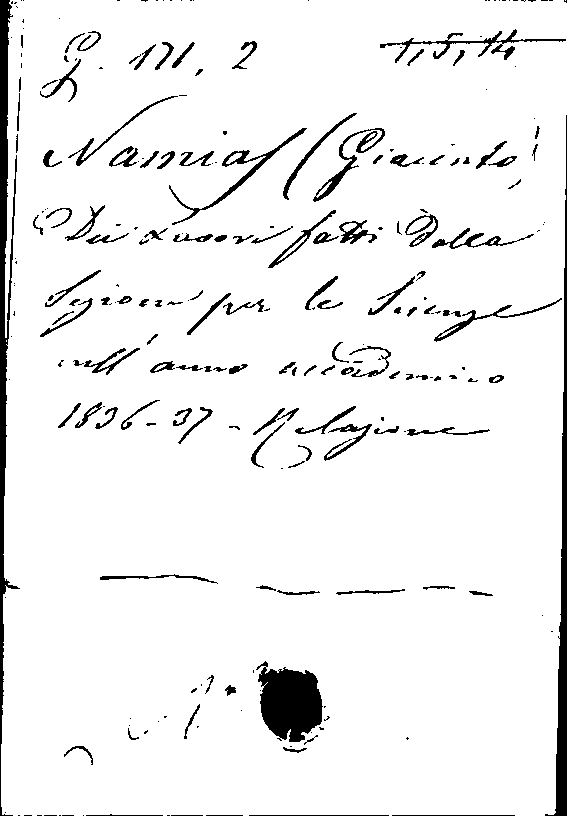 G. 171, 2 1, 5, 14
Namias (Giacinto)
Dei Lavori fatti dalla
Sezione per le Scienze
nell'anno accademico
1836-37 - Relazione